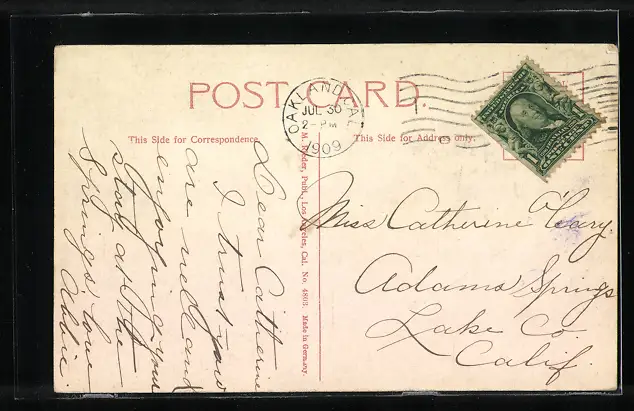 POST CARD.
OAKLAND, CAL.
JUL 30
2-PM
1909
This Side for Correspondence.
This Side for Address only.
M. Rieder, Publ., Los Angeles, Cal. No. 4803. Made in Germany.
Dear Catherine
I trust you
are well and
enjoying your
stop at the
Springs, love
Abbie.
Miss Catherine O'Leary,
Adams Springs
Lake Co.
Calif.